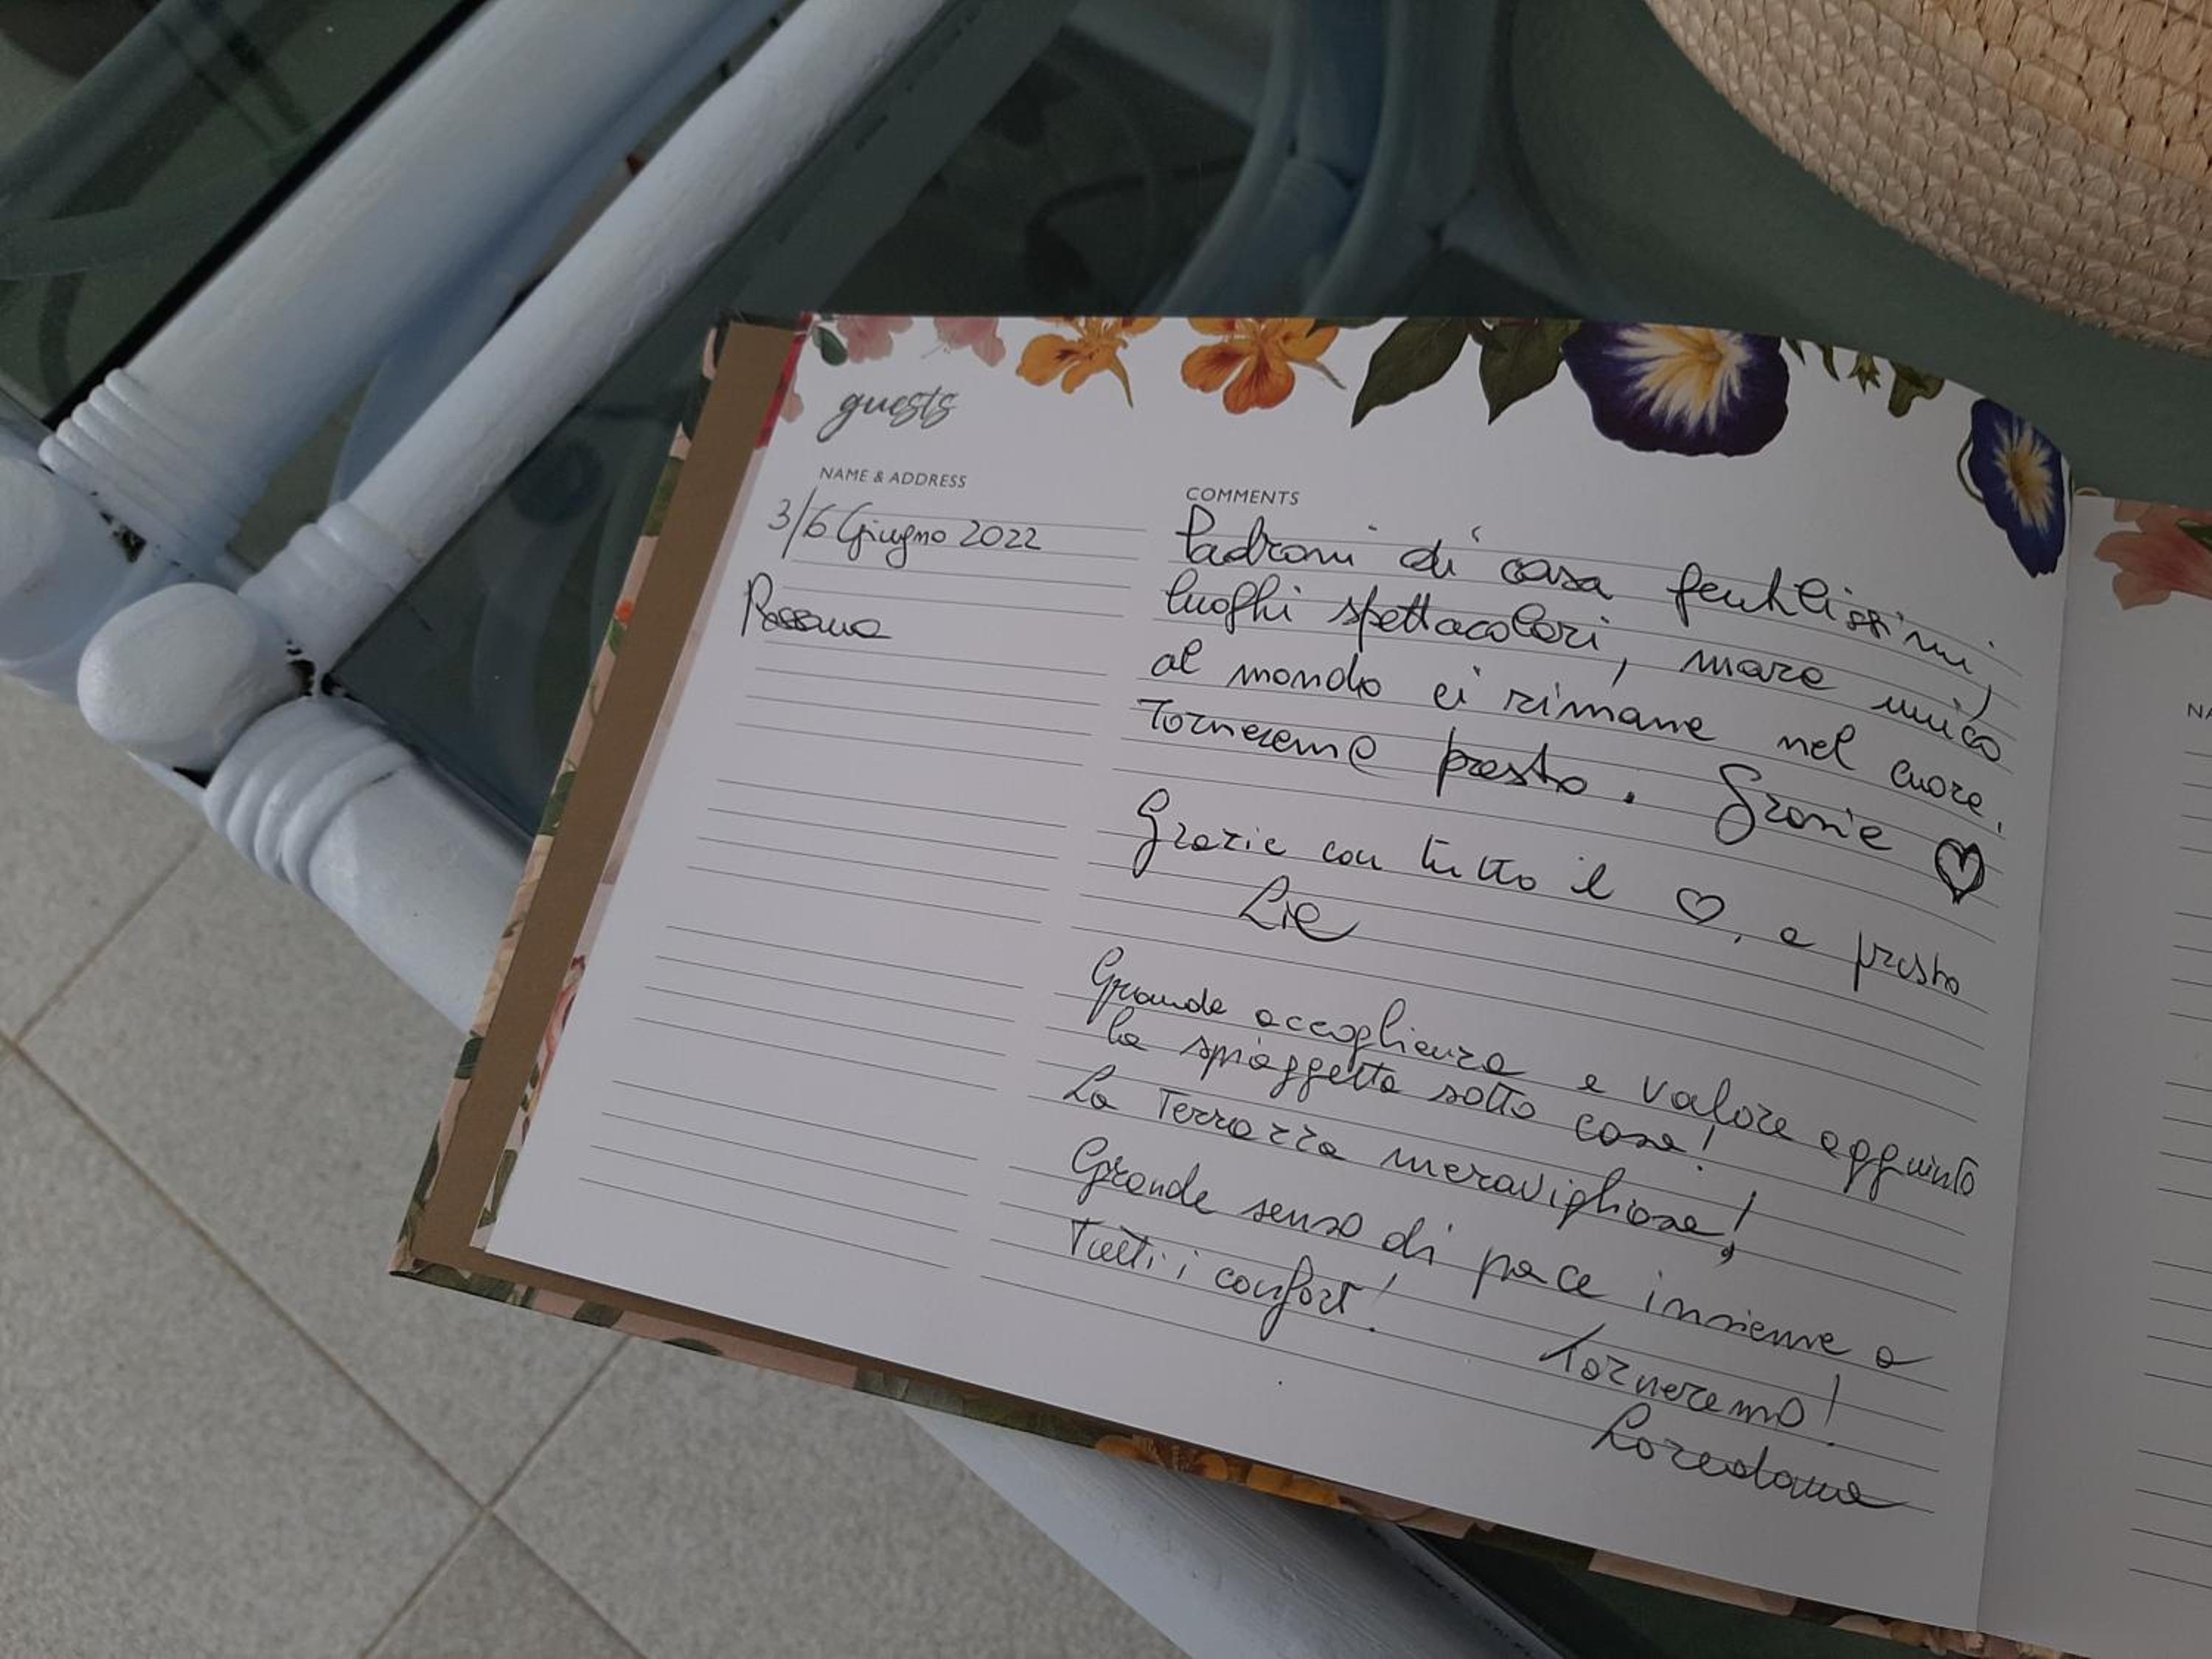 guests
NAME & ADDRESS
COMMENTS
3/6 Giugno 2022
Rossana
Padroni di casa gentilissimi,
luoghi spettacolari, mare unico
al mondo ci rimane nel cuore.
Torneremo presto. Grazie ♡
Grazie con tutto il ♡, a presto
Grande accoglienza e valore aggiunto
la spiaggetta sotto casa!
La Terrazza meravigliosa!
Grande senso di pace insieme a
Tutti i confort!
Torneremo!
Loredana
NA